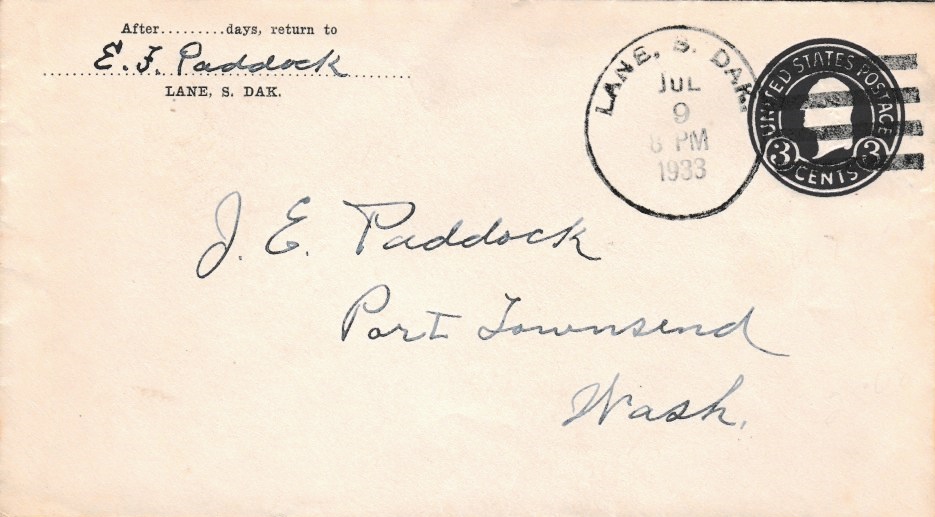 After.........days, return to
E. F. Paddock
LANE, S. DAK.
LANE, S. DAK.
JUL
9
8 PM
1933
UNITED STATES POSTAGE
3 3
CENTS
J. E. Paddock
Port Townsend
Wash.